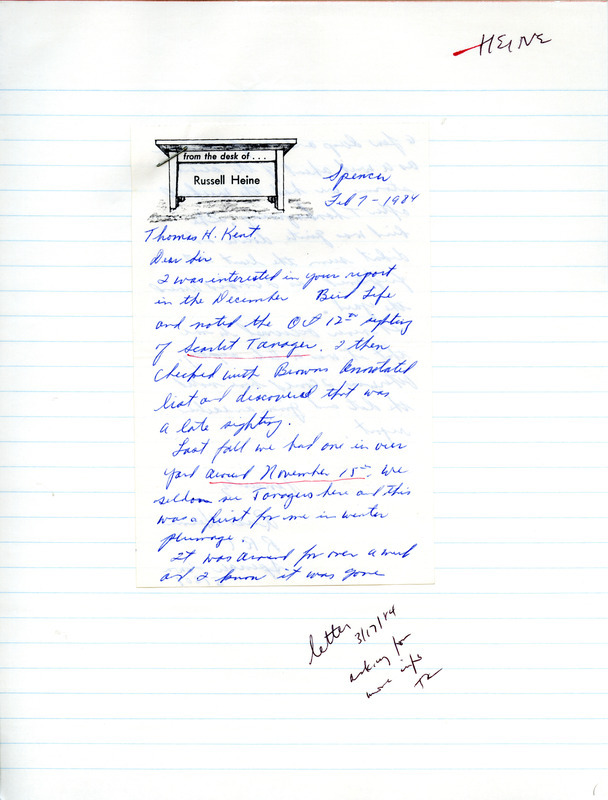 HEINE
from the desk of . . .
Russell Heine
Spencer
Feb 7 - 1984
Thomas H. Kent
Dear Sir
I was interested in your report
in the December Bird Life
and noted the Oct 12th sighting
of Scarlet Tanager. I then
checked with Browns Annotated
list and discovered that was
a late sighting.
Last fall we had one in our
yard around November 15th. We
seldom see Tanagers here and this
was a first for me in winter
plumage.
It was around for over a week
and I know it was gone
letter 3/17/84
asking for
more info